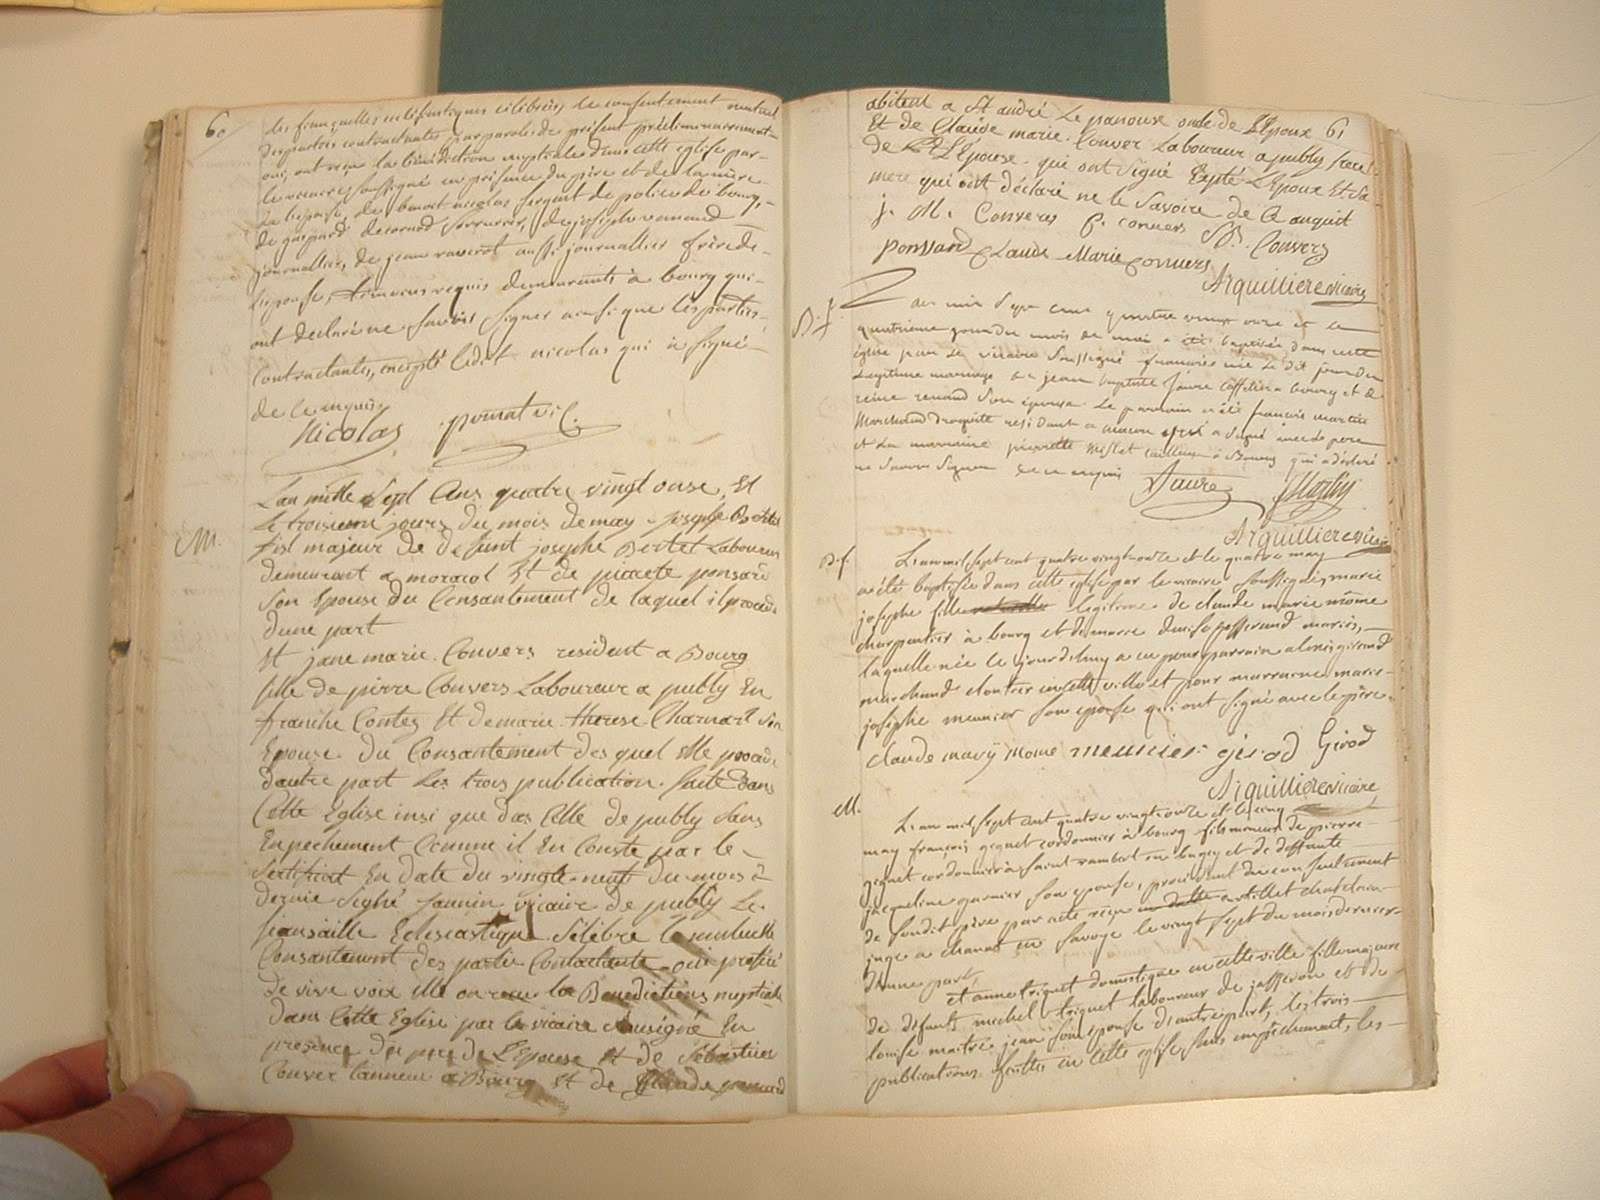 60
les fiançailles ecclésiastiques célébrées le consentement mutuel
des parties contractantes par paroles de présent préliminairement
oui, ont reçu la bénédiction nuptiale dans cette église par
le vicaire soussigné en présence du père et de la mère
de l'épouse, de benoit nicolas sergent de police de bourg,
de gaspard serrurier, de joseph renaud
journallier, de jean raverot aussi journallier frère de
l'épouse, témoins requis demeurants à bourg qui
ont déclaré ne savoir signer ainsi que les parties
contractantes, excepté ledit nicolas qui a signé
de ce enquis
Nicolas
M.
L'an mille Sept Cens quatre vingt onse, Et
le troisieme jours du mois de may joseph Bertet
fist majeur de defunt josephe Bertet Laboureur
demeurant a Et de pierrete ponsard
Son Epouse du Consantement de laquel il procede
dune part
Et jane marie Convers resident a Bourg
fille de pierre Convers Laboureur a publy En
franche Contez Et de marie therese Charnart Son
Epouse du Consantement desquel elle procede
dautre part les trois publication faite dans
Cette Eglise insi que das Celle de publy Sans
Enpechement Comme il En Conste par le
Sertificat En date du vingte neuf du mois
dernie Signé vicaire de publy Le
fiansaille Eclesiastique Selebre le mutuelle
Consantement des partie Contractante oui proferé
de vive voix elle on recu la Benedictions nuptiale
dans Cette Eglise par le vicaire sousigné En
presence du pere de L'Epouse Et de Sebastien
Conver tanneur a Bourg Et de Claude ponsard
abitent a St andré Le panoux oncle de L'Epoux 61
Et de Claude marie Conver Laboureur a publy frere
de L'Epouse qui ont Signé Expté L'Epoux Et Sa
mere qui ont déclaré ne le Savoire de Ce anquit
j. M. Convers P. convers SB. Convers
ponsard Claude Marie convers
Arquilliere vicaire
B. f.
L'an mil Sept cens quatre vingt onze et le
quatrieme jour du mois de mai a été baptisée dans cette
église par le vicaire Soussigné françoise née le dit jour du
Légitime mariage de jean baptiste faure caffetier a bourg et de
reine renaud son épouse. Le parrain a été françois martin
Marchand droguiste residant a macon qui a signé avec le pere
et La marraine pierrette a Bourg qui a déclaré
ne Savoir Signer de ce enquis
faure Martin
Arquilliere vicaire
B. f.
L'an mil sept cent quatre vingt onze et le quatre may
a été baptisée dans cette église par le vicaire soussigné, marie
josephe fille légitime de claude marie moine
charpentier à bourg et de marie denise josserand mariés,
laquelle née le jour d'huy a eu pour parrain alexis girod
marchand cloutier en cette ville et pour marraine marie
josephe meunier son epouse qui ont signé avec le père.
claude mary moine meunier girod Girod
Arquilliere vicaire
M.
L'an mil sept cent quatre vingt onze et le cinq
may françois gequet cordonnier à bourg fils mineur de pierre
gequet cordonnier à saint rambert en bugey et de deffunte
jacqueline garnier son epouse, procédant du consentement
de son dit père par acte reçu chatelain
juge a chanas en Savoye le vingt sept du mois dernier
d'une part
et anne triquet domestique en cette ville fille majeure
de défunts michel triquet laboureur de jasseron et de
louise maitre jean son epouse d'autre part, les trois
publications faittes en cette église sans empêchement, les